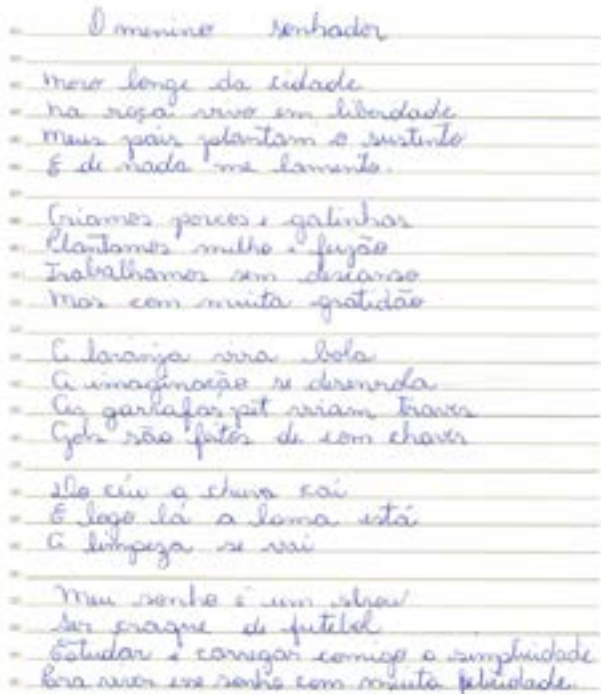 O menino sonhador
Moro longe da cidade
Na roça vivo em liberdade
Meus pais plantam o sustento
E de nada me lamento.
Criamos porcos e galinhas
Plantamos milho e feijão
Trabalhamos sem descanso
Mas com muita gratidão
A laranja vira bola
A imaginação se desenrola
As garrafas pet viram traves
Gols são fatos de com chaves
Do céu a chuva cai
E logo lá a lama está
A limpeza se vai
Meu sonho é um show
Ser craque de futebol
Estudar e carregar comigo a simplicidade
Pra viver esse sonho com muita felicidade.